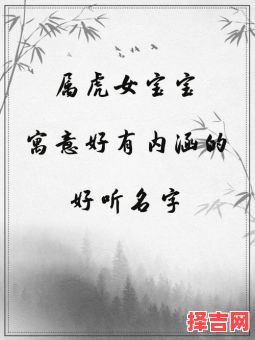 属虎女宝宝
寓意好有内涵的
好听名字
择吉网